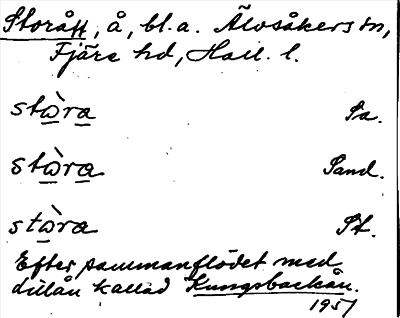 Storån, å, bl.a. Älvsåkers sn,
Fjäre hd, Hall. l.
stὼra Sa.
stὼra Sand.
stὼra St.
Efter sammanflödet med
dillån kallad Kungsbackån.
1951